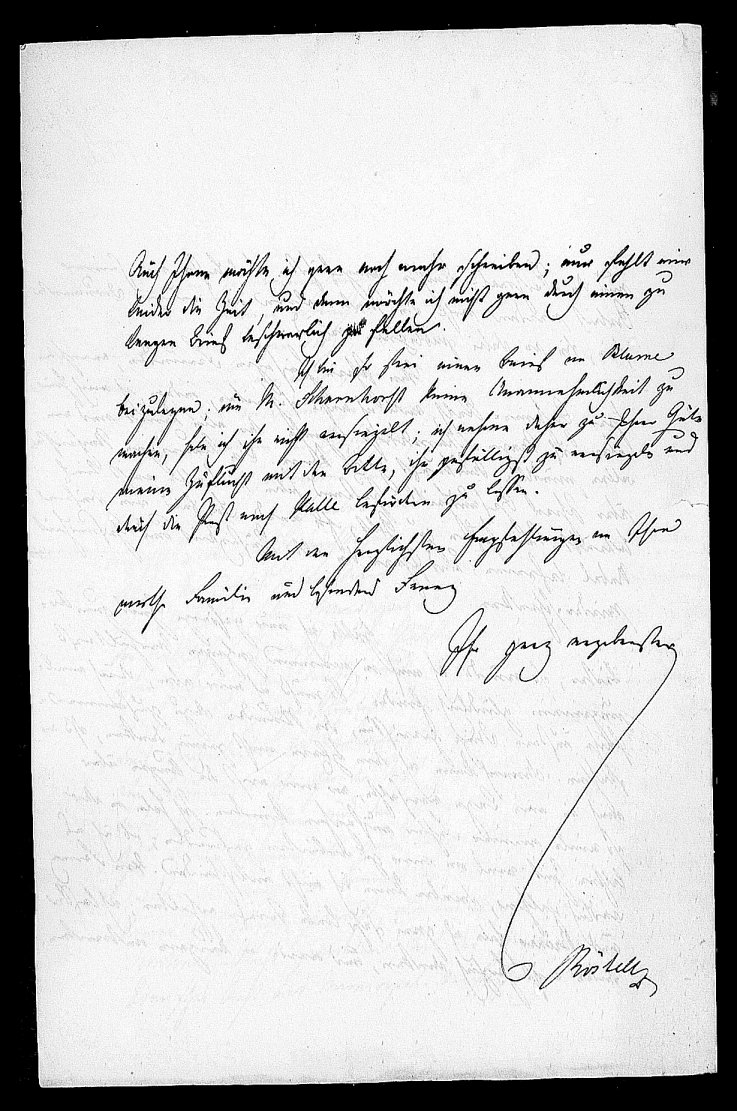 Auch Ihnen möchte ich gern noch mehr schreiben; nur fehlt mir
leider die Zeit, und dann möchte ich nicht gern durch einen zu
langen Brief beschwerlich fallen.
Ich bin so frei einen Brief an Blume
beizulegen; um H. Scharnhorst keine Unannehmlichkeit zu
machen, habe ich ihn nicht versiegelt; ich nehme daher zu Ihrer Güte
meine Zuflucht mit der Bitte, ihn gefälligst zu versiegeln und
durch die Post nach Halle befördern zu lassen.
Mit den herzlichsten Empfehlungen an Ihre
werthe Familie und besonders
Ihr ganz ergebenster
Röstell